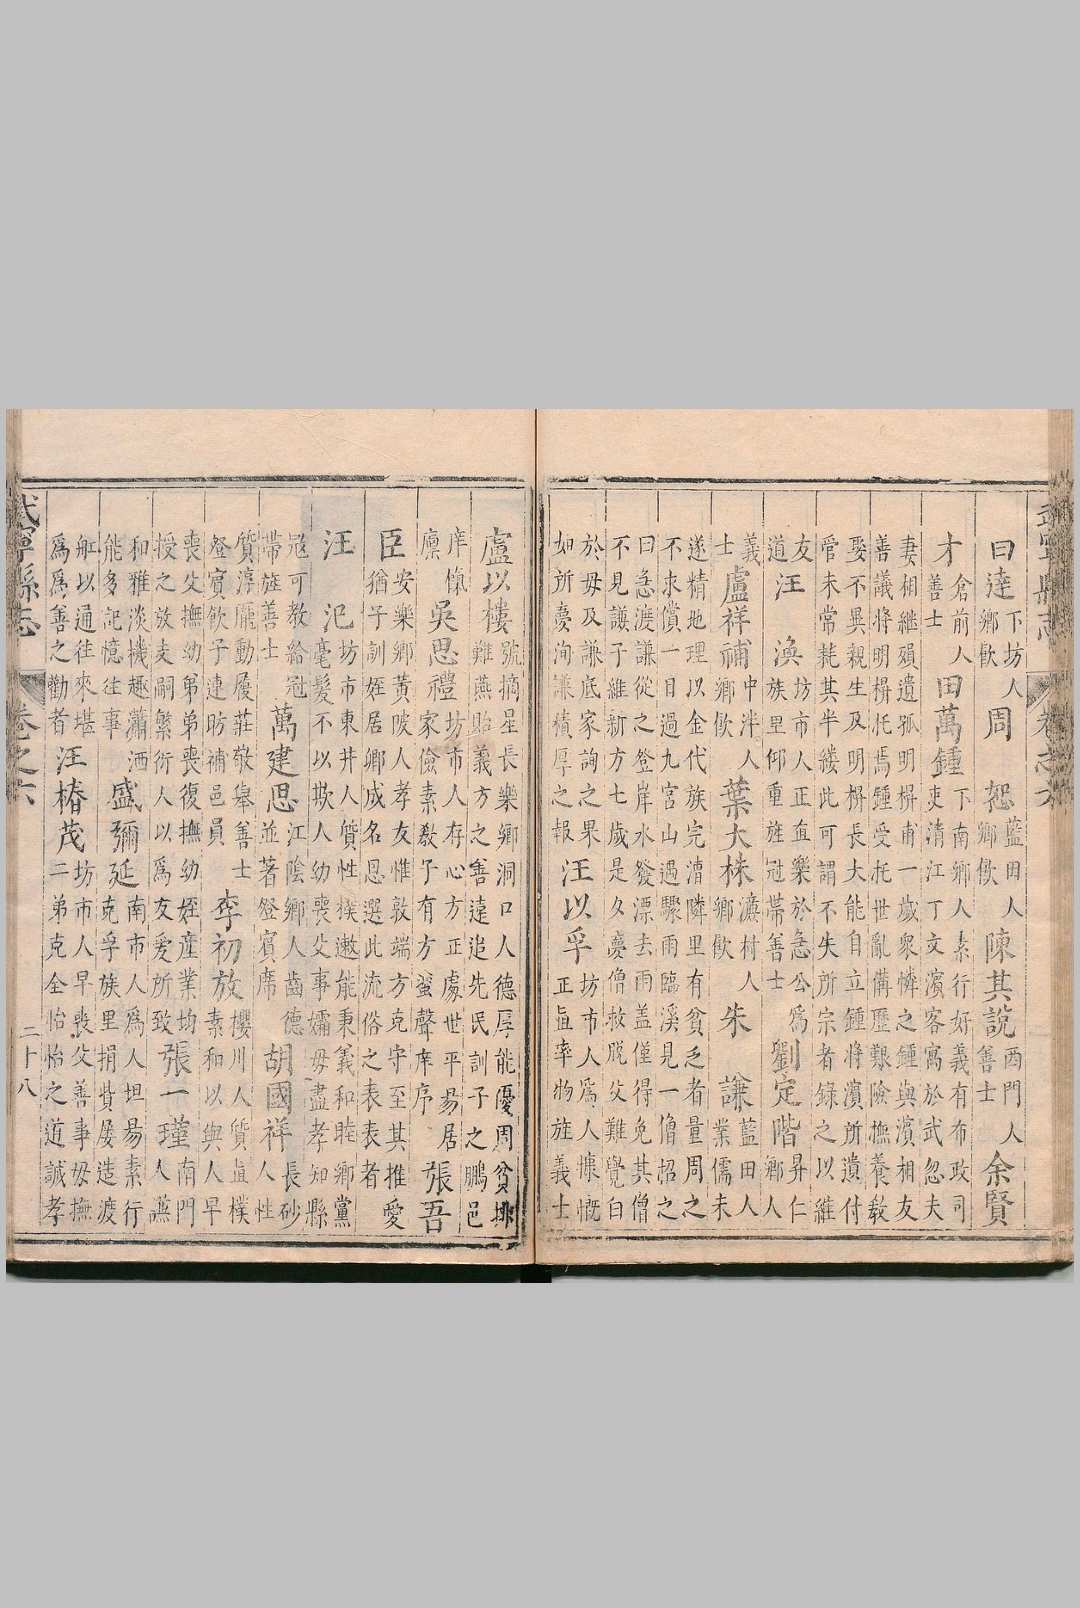 武寧縣志 卷之六
曰達 下坊人鄉飲 周恕 藍田人鄉飲 陳其說 西門人善士 余賢
才 倉前人善士 田萬鍾 下南鄉人素行好義有布政司吏清江丁文濱客寓於武忽夫
妻相繼殞遺孤明楫甫一歲衆憐之鍾與濱相友善議將明楫托焉鍾受托世亂備歷艱險撫養教
娶不異親生及明楫長大能自立鍾將濱所遺付管未常耗其半縷此可謂不失所宗者錄之以維
友道 汪渙 坊市人正直樂於急公爲族里仰重旌冠帶善士 劉定階 昇仁鄉人
義士 盧祥補 中泮人鄉飲 葉大株 瀌村人鄉飲 朱謙 藍田人業儒未
遂精地理以金代族完漕隣里有貧乏者量周之不求償一日過九宮山遇驟雨臨溪見一僧招之
曰急渡謙從之登岸水發漂去雨蓋僅得免其僧不見謙子維新方七歲是夕夢僧救脫父難覺白
於母及謙底家詢之果如所夢洵謙積厚之報 汪以孚 坊市人爲人慷慨正直率物旌義士
盧以樓 號摘星長樂鄉洞口人德厚能優周貧難燕貽義方之善達追先民訓子之鵬邑
庠儀 吳思禮 坊市人存心方正處世平易居家儉素教子有方蜚聲庠序 張吾
臣 安樂鄉黃陂人孝友惟敦端方克守至其推愛猶子訓姪居鄉成名恩選此流俗之表表者
汪汜 坊市東井人質性樸遬能秉義和睦鄉黨毫髮不以欺人幼喪父事孀母盡孝知縣
冠可教給冠帶旌善士 萬建思 江陰鄉人齒德並著登賓席 胡國祥 長砂人性
質淳龐動履莊敬舉善士登賓飲子連昉補邑員 李初放 櫻川人質直樸素和以與人早
喪父撫幼弟弟喪復撫幼姪產業均授之放支嗣繁衍人以爲友愛所致 張一瑾 南門人蘸
和雅淡機趣瀟洒能多記憶往事 盛彌延 南市人爲人坦易素行克孚族里捐貲屢造渡
舡以通往來堪爲爲善之勸者 汪椿茂 坊市人早喪父善事母撫二弟克全怡怡之道誠孝
武寧縣志 卷之六 二十八